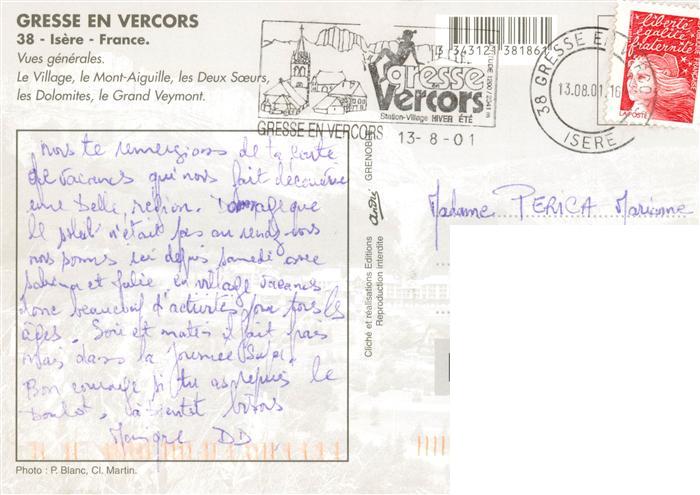 GRESSE EN VERCORS
38 - Isère - France.
Vues générales.
Le Village, le Mont-Aiguille, les Deux Sœurs,
les Dolomites, le Grand Veymont.
3 343121 381861
gresse
en
Vercors
Station-Village HIVER ÉTÉ
GRESSE EN VERCORS
13-8-01
38 GRESSE EN
13.08.01.16
ISERE
liberté
égalité
fraternité
LA POSTE
nous te remercions de ta carte
de vacances qui nous fait découvrir
une belle région. Dommage que
le soleil n'était pas au rendez-vous
nous sommes ici depuis samedi avec
et Julie en village vacances
donc beaucoup d'activités pour tous les
âges. Soir et matin il fait frais
mais dans la journée Super
Bon courage si tu as repris le
boulot, à bientôt bisous
DD
Madame PERICA Marianne
André
GRENOBLE
Cliché et réalisations Editions
Reproduction interdite
Photo : P. Blanc, Cl. Martin.